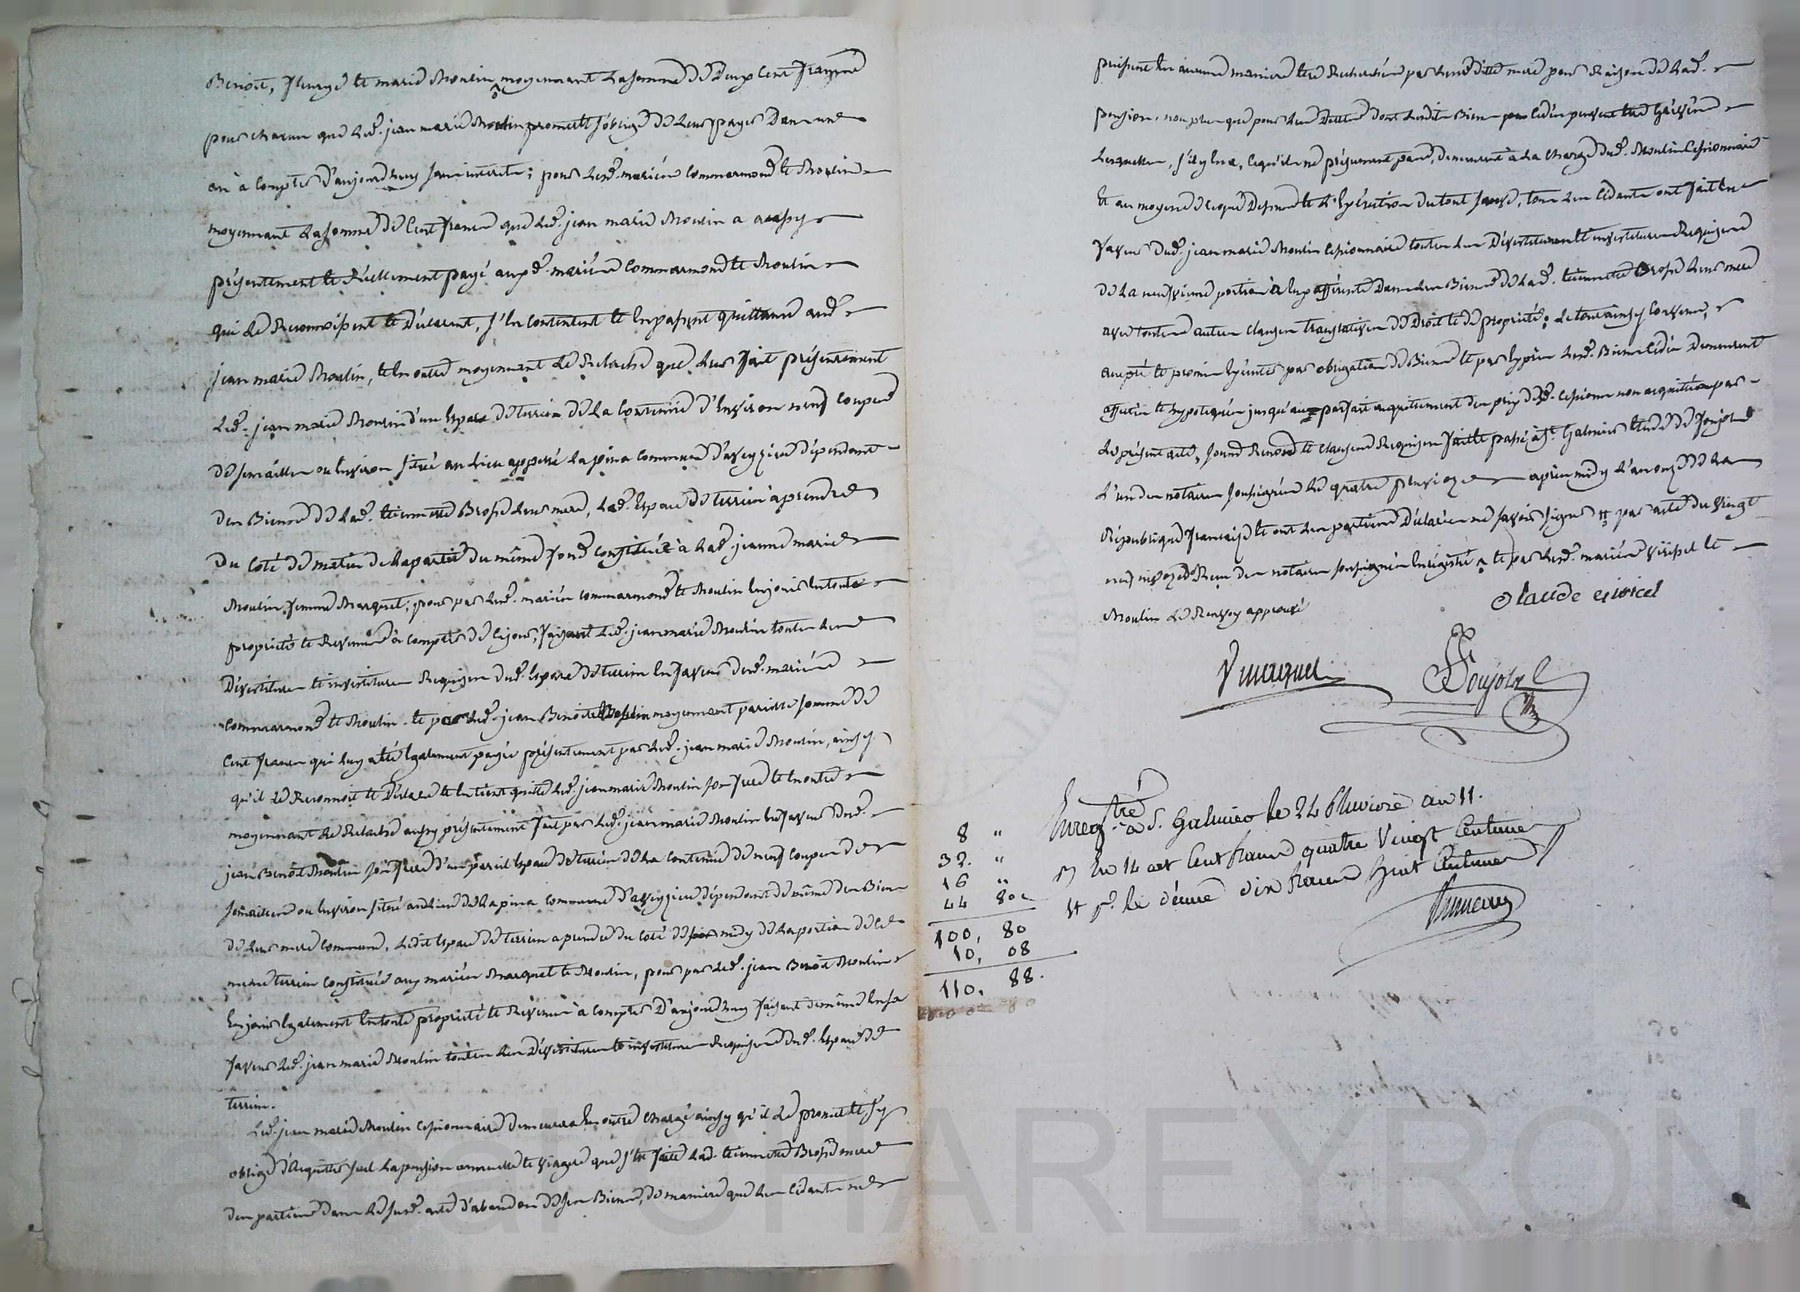 Benoit, fleurye et marie Moulin, moyennant la somme de Deux Cent francs
pour chacun que led. jean marie Moulin promet et s'oblige de leur payer Dans une
an à Compter d'aujourdhuy sans interets; pour lesd. mariés Commarmond et Moulin
moyennant la somme de Cent francs que led. jean marie Moulin a aussy
présentement et Réellement payé auxd. mariés Commarmond et Moulin
qui le Reconnoissent et Déclarent, s'en Contentent et en passent quittance aud.
jean marie Moulin, et en outre moyennant le Relache que leur fait présentement
led. jean marie Moulin d'un Espace de terrein de la Contenue d'Environ neuf Coupes
de semailles ou Environ situé au lieu appellé la pina Commune d'aveyzieu dépendant
des Biens de lad. Brosse leur mere, led. Espace de terrein à prendre
du Coté de matin de la partie du même fond Constituée à lad. jeanne marie
Moulin femme Marquet; pour par lesd. mariés Commarmond et Moulin en jouir en toute
propriété et Revenus à Compter de Ce jour, faisant led. jean marie Moulin toutes les
Dévestitures et investitures Requises dud. Espace de terrein en faveur desd. mariés
Commarmond et Moulin. et pour led. jean Benoit Moulin moyennant pareille somme de
Cent francs qui luy a été Egalement payée présentement par led. jean marie Moulin, ainsy
qu'il le Reconnoit et Déclare et en tient quitte led. jean marie Moulin son frere et en outre
moyennant le Relache aussy présentement fait par led. jean marie Moulin en faveur dud.
jean Benoit Moulin son frere d'un pareil Espace de terrein de la Contenue de neuf Coupes de
semailles ou Environ situé au lieu de la pina Commune d'aveyzieu dépendant de même des Biens
de leur mere Commune, ledit Espace de terrein a prendre du Coté de midy de la portion de Ce
même terrein Constituée aux mariés Marquet et Moulin, pour par led. jean Benoit Moulin
En jouir Egalement En toute propriété et Revenus à Compter D'aujourdhuy faisant de même En sa
faveur led. jean marie Moulin toutes les Dévestitures et investitures Requises dud. Espace de
terrein.
Led. jean marie Moulin Cessionnaire demeurera En outre Chargé ainsy qu'il le promet et s'y
oblige d'acquitter seul la pension annuelle et viagere que s'est faite lad. Brosse mere
des parties dans le susd. acte d'abandon de ses Biens, de maniere que les Cédants ne
puissent En aucune maniere etre Recherchés par leurd. mere pour Raison de lad.
pension. non plus que pour les Dettes dont lesdits Biens Cédés peuvent etre Grévés
lesquelles, s'il y En a, Ce qu'ils ne présument pas, demeurent à la Charge dud. Moulin Cessionnaire
Et au moyen de Ce que Dessus et de l'Exécution du tout, tous les Cédants ont fait En
faveur dud. jean marie Moulin Cessionnaire toutes les Dévestitures et investitures Requises
de la neuvieme portion à Eux afferente Dans les Biens de lad. Brosse leur mere
avec toutes autres clauses translatives de Droit et de propriété; le tout ainsy Convenu,
accepté et promis par obligation de Biens et par Exprès lesd. Biens Cédés Demeurent
affectés et hypotequés jusqu'au parfait acquittement du prix desd. Cessions non acquittées par
le présent acte, soumis Renoncé et Clauses Requises fait et passé à St. Galmier Etude de Poujol
L'un des notaires soussignés le quatre pluviose après midy l'an onze de la
République française et ont les parties Déclaré ne savoir signer par acte du Vingt
neuf nivoze Reçu des notaires soussignés Enregistré et par lesd. mariés et
Moulin le Renvoy approuvé
Claude
Poujol
Enregistré a S. Galmier le 24 Pluviose an 11.
8 "
32. "
16 "
44 80c
100, 80
10, 08
110. 88.
En 14 art Cent francs quatre Vingt Centimes
et p.r le décime dix francs huit Centimes